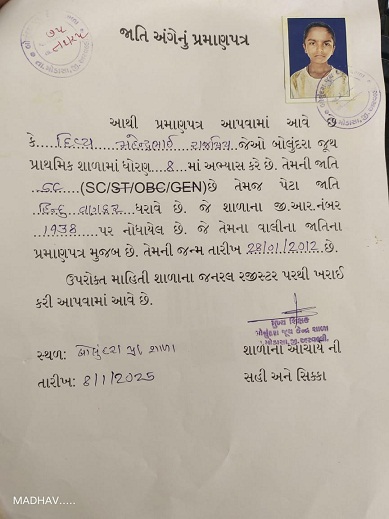 જાતિ અંગેનું પ્રમાણપત્ર
આથી પ્રમાણપત્ર આપવામાં આવે છે
કે દિવ્યા મહેન્દ્રભાઈ જેઓ બોલુંદરા જૂથ
પ્રાથમિક શાળામાં ધોરણ 8 માં અભ્યાસ કરે છે. તેમની જાતિ
SC (SC/ST/OBC/GEN)છે તેમજ પેટા જાતિ
હિન્દુ વણકર ધરાવે છે. જે શાળાના જી.આર.નંબર
1938 પર નોંધાયેલ છે. જે તેમના વાલીના જાતિના
પ્રમાણપત્ર મુજબ છે. તેમની જન્મ તારીખ 28/01/2012 છે.
ઉપરોક્ત માહિતી શાળાના જનરલ રજીસ્ટર પરથી ખરાઈ
કરી આપવામાં આવે છે.
મુખ્ય શિક્ષક
સ્થળ: બોલુંદરા જૂથ શાળા
શાળાના આચાર્ય ની
તારીખ: 8/1/2025
સહી અને સિક્કા
MADHAV.....